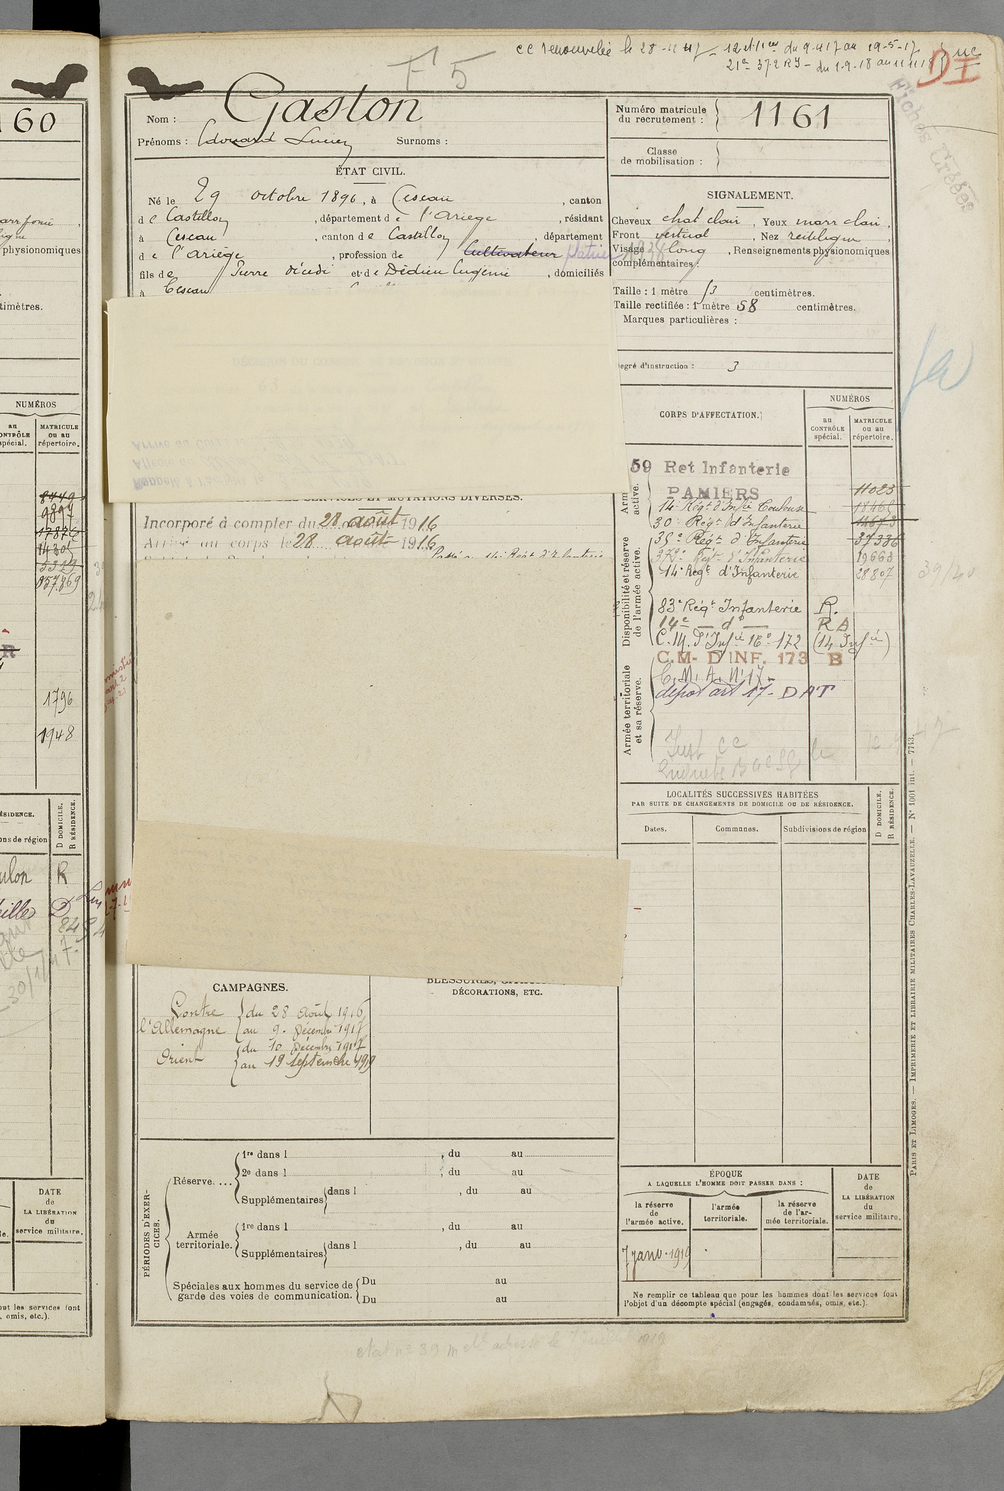 cc renouvelée le 28-11-47 - 12e et 1er du 9-4-17 au 19-5-17
21e 372 RI - du 1-9-18 au 11-11-18
F 5
DI
Fiches Créées
160
Nom : Gaston
Prénoms : Edouard Lucien Surnoms :
Numéro matricule du recrutement : 1161
Classe de mobilisation :
ÉTAT CIVIL.
Né le 29 octobre 1896, à Cescau, canton
de Castillon, département de l'Ariège, résidant
à Cescau, canton de Castillon, département
de l'Ariège, profession de Cultivateur
fils de Pierre décédé et de Dédieu Eugénie, domiciliés
à Cescau
SIGNALEMENT.
Cheveux chat clair, Yeux marr clair,
Front vertical, Nez rectiligne,
Visage long, Renseignements physionomiques
complémentaires :
Taille : 1 mètre 53 centimètres.
Taille rectifiée : 1 mètre 58 centimètres.
Marques particulières :
Degré d'instruction : 3
CORPS D'AFFECTATION.
NUMÉROS
au CONTRÔLE spécial.
MATRICULE ou au répertoire.
SERVICES ET MUTATIONS DIVERSES.
Incorporé à compter du 28 août 1916
Arrivé au corps le 28 août 1916
Passé au 14e Régt d'Infanterie
Armée active.
59 Ret Infanterie
PAMIERS 11025
14e Régt d'Infie Toulouse 18465
30e Régt d'Infanterie
35e Régt d'Infanterie 37336
372e Régt d'Infanterie 19663
14e Régt d'Infanterie 28807
Disponibilité et réserve de l'armée active.
83e Régt Infanterie R.
14e d° RA
C.M. d'Infie 16e 172 (14 Infie)
C.M. D'INF. 173 B
Armée territoriale et sa réserve.
C. M. A. N° 17
dépôt art 17 - DAT
LOCALITÉS SUCCESSIVES HABITÉES
PAR SUITE DE CHANGEMENTS DE DOMICILE OU DE RÉSIDENCE.
Dates. Communes. Subdivisions de région
D DOMICILE.
R RÉSIDENCE.
CAMPAGNES.
Contre l'Allemagne du 28 août 1916
au 9 Décembre 1917
Orient du 10 Décembre 1917
au 19 septembre 1919
BLESSURES,
DÉCORATIONS, ETC.
PÉRIODES D'EXERCICES.
Réserve....
1re dans l , du au
2e dans l , du au
Supplémentaires dans l , du au
Armée territoriale.
1re dans l , du au
Supplémentaires dans l , du au
Spéciales aux hommes du service de garde des voies de communication.
Du au
Du au
ÉPOQUE
A LAQUELLE L'HOMME DOIT PASSER DANS :
la réserve de l'armée active.
l'armée territoriale.
la réserve de l'armée territoriale.
DATE de LA LIBÉRATION du service militaire.
7 janv. 1919
Ne remplir ce tableau que pour les hommes dont les services font
l'objet d'un décompte spécial (engagés, condamnés, omis, etc.).
PARIS ET LIMOGES. — IMPRIMERIE ET LIBRAIRIE MILITAIRES CHARLES-LAVAUZELLE. — N° 1001 int. — 7713.
physionomiques
centimètres.
NUMÉROS
MATRICULE ou au répertoire.
8449
9897
1796
1948
DATE de LA LIBÉRATION du service militaire.